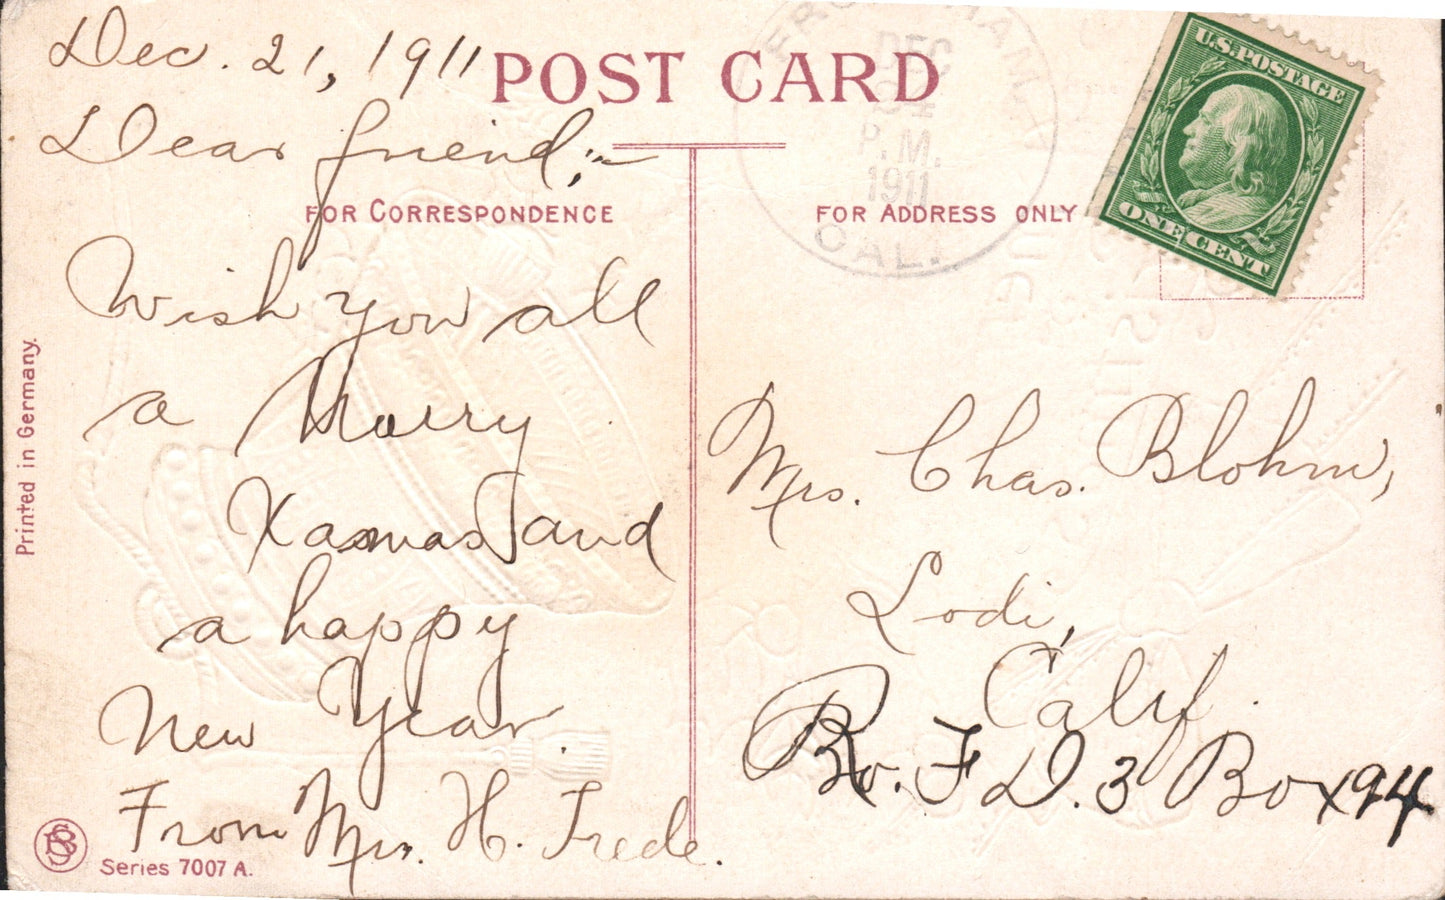 Dec. 21, 1911
Dear friend;-
Wish you all
a Merry
Xasmas and
a happy
New Year.
From Mrs. H. Frede.
POST CARD
FOR CORRESPONDENCE
FOR ADDRESS ONLY
DEC
P.M.
1911
CAL.
U.S. POSTAGE
ONE CENT
Mrs. Chas. Blohm,
Lodi,
Calif.
R. F D. 3 Box 94
Printed in Germany.
BS
Series 7007 A.